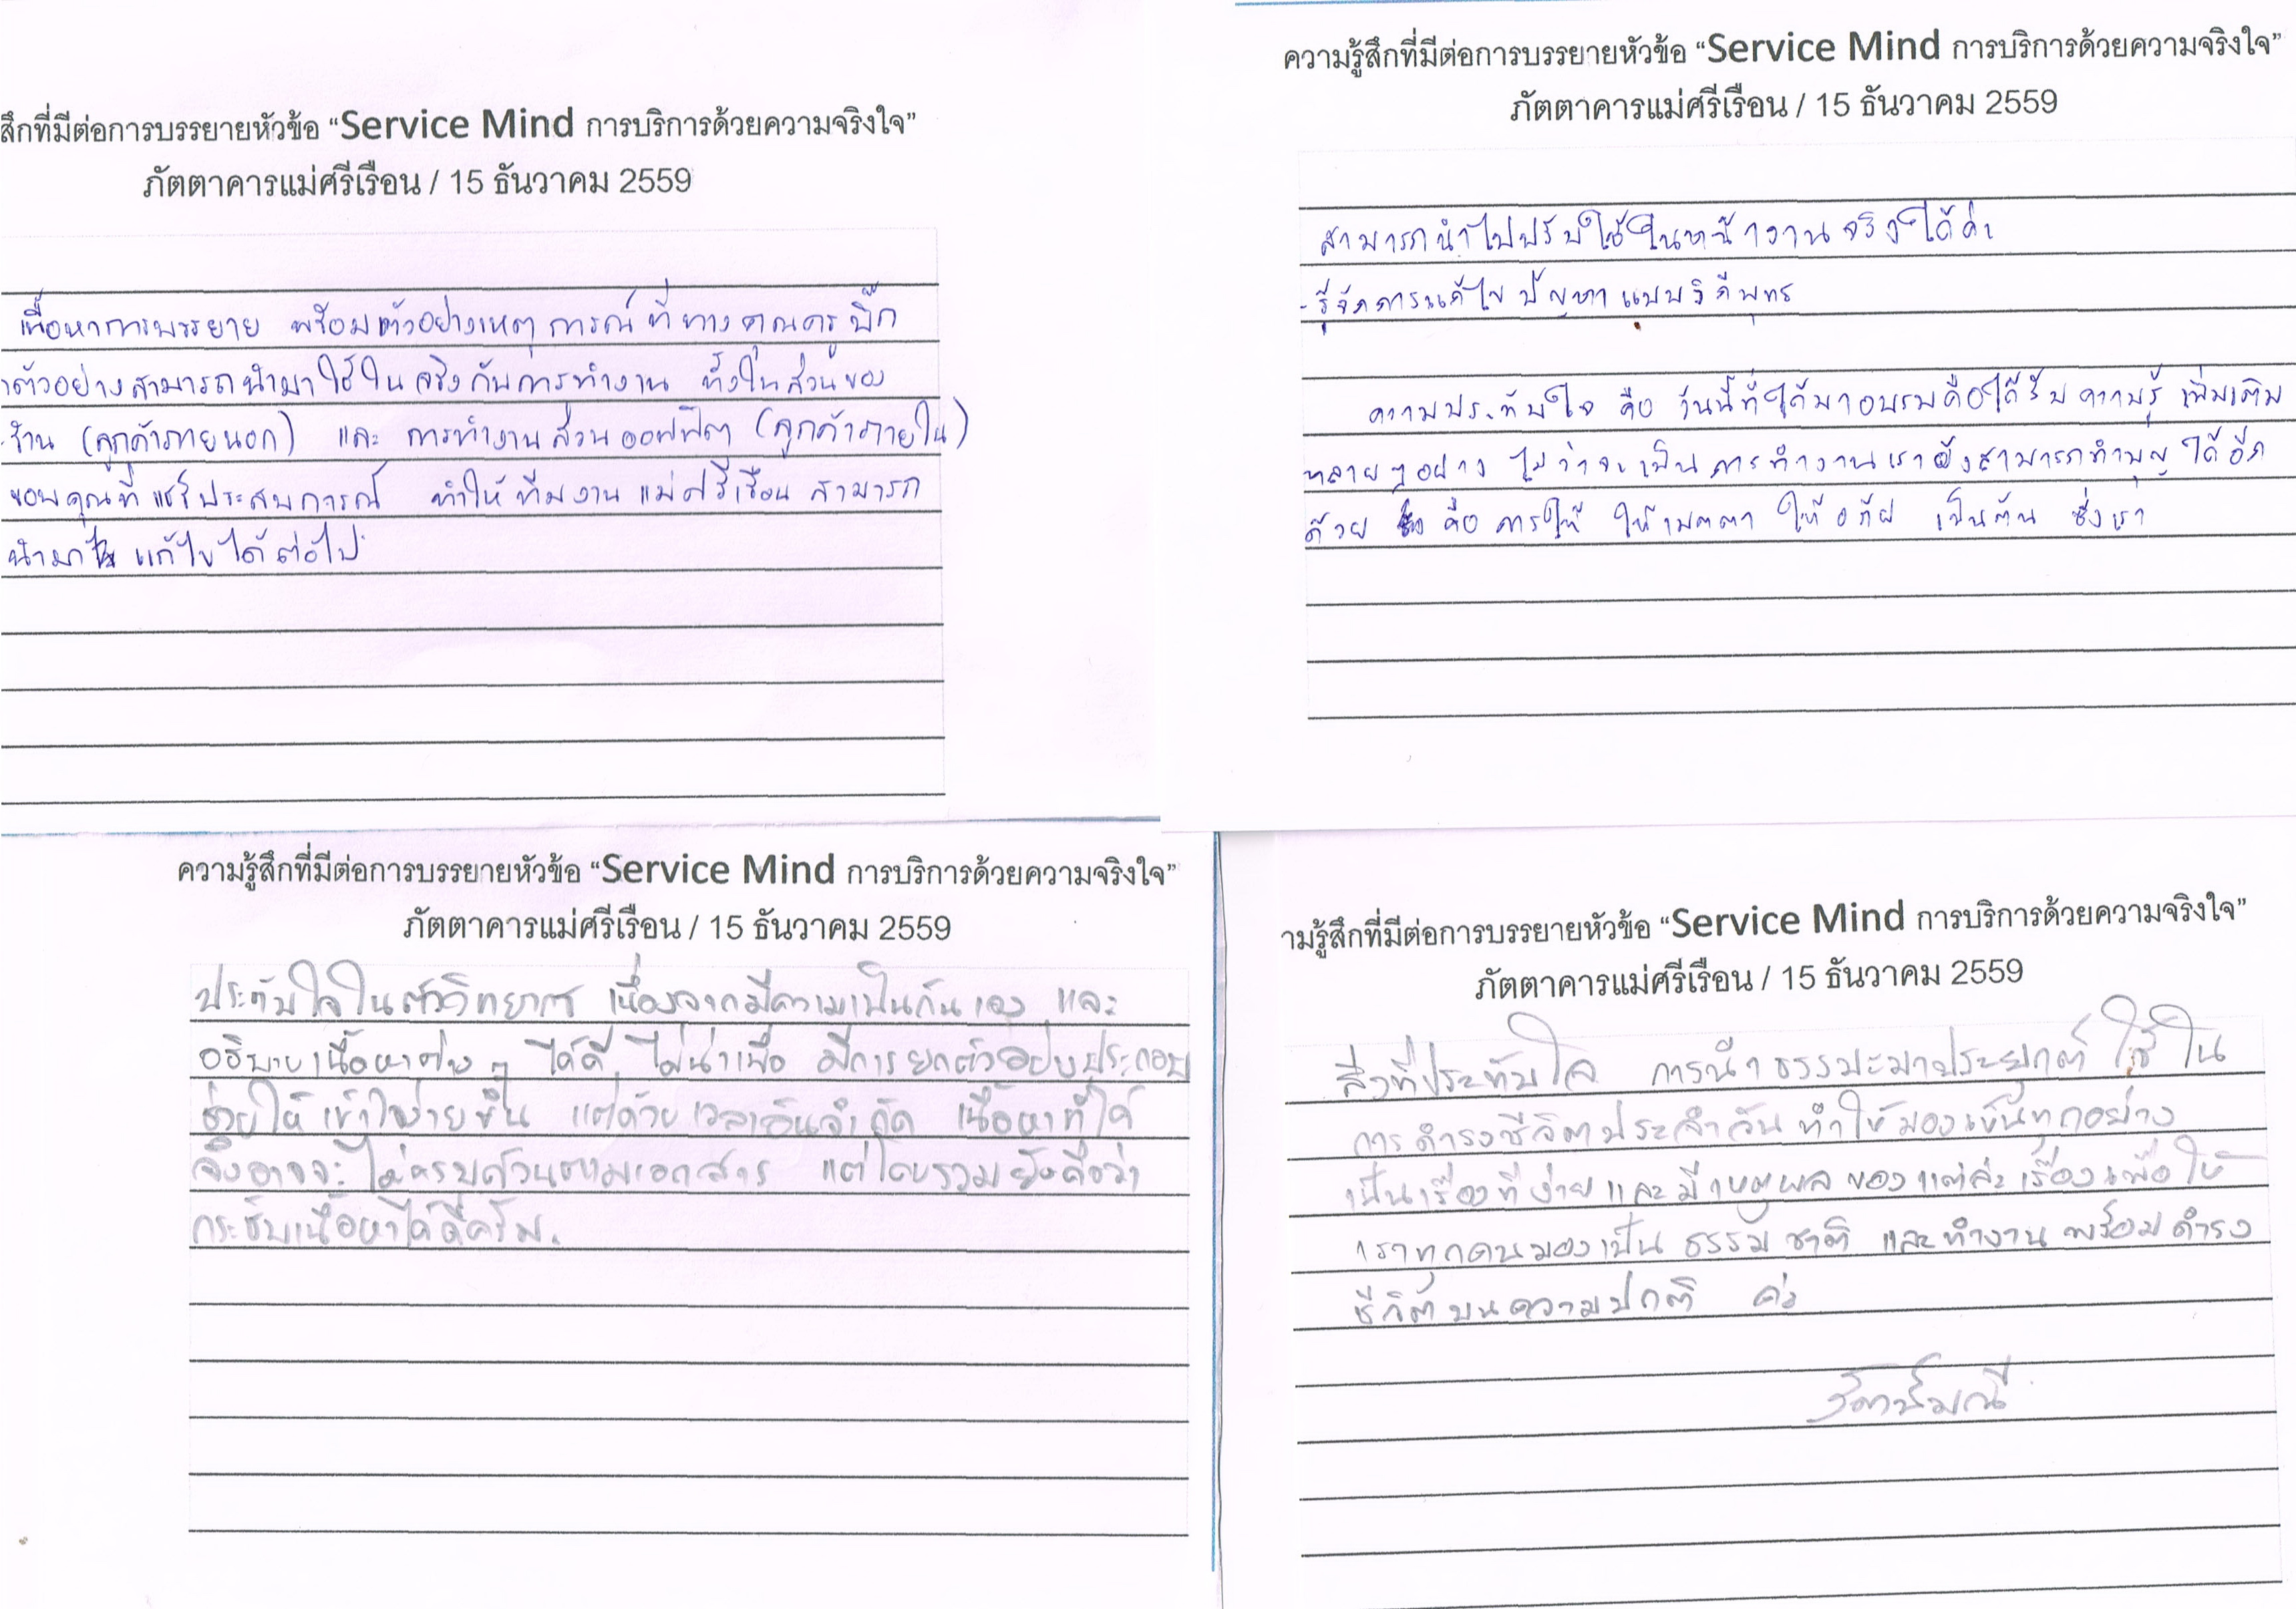 สึกที่มีต่อการบรรยายหัวข้อ “Service Mind การบริการด้วยความจริงใจ”
ภัตตาคารแม่ศรีเรือน / 15 ธันวาคม 2559
เนื้อหาการบรรยาย พร้อมตัวอย่างเหตุการณ์ที่ทางคุณครูบิ๊ก
าตัวอย่างสามารถนำมาใช้ในจริงกับการทำงาน ทั้งในส่วนของ
ร้าน (ลูกค้าภายนอก) และ การทำงานส่วนออฟฟิต (ลูกค้าภายใน)
ขอบคุณที่แชร์ประสบการณ์ ทำให้ทีมงานแม่ศรีเรือน สามารถ
นำมา แก้ไขได้ต่อไป
ความรู้สึกที่มีต่อการบรรยายหัวข้อ “Service Mind การบริการด้วยความจริงใจ”
ภัตตาคารแม่ศรีเรือน / 15 ธันวาคม 2559
สามารถนำไปปรับใช้ในหน้างานจริงได้ค่ะ
- รู้จักการแก้ไขปัญหาแบบวิถีพุทธ
ความประทับใจ คือ วันนี้ที่ได้มาอบรมคือได้รับความรู้เพิ่มเติม
หลายๆอย่าง ไม่ว่าจะเป็นการทำงานเรายังสามารถทำบุญได้อีก
ด้วย คือการให้ ให้เมตตา ให้อภัย เป็นต้น ซึ่งเรา
ความรู้สึกที่มีต่อการบรรยายหัวข้อ “Service Mind การบริการด้วยความจริงใจ”
ภัตตาคารแม่ศรีเรือน / 15 ธันวาคม 2559
ประทับใจในตัววิทยากร เนื่องจากมีความเป็นกันเอง และ
อธิบายเนื้อหาต่างๆ ได้ดี ไม่น่าเบื่อ มีการยกตัวอย่างประกอบ
ช่วยให้เข้าใจง่ายขึ้น แต่ด้วยเวลาอันจำกัด เนื้อหาที่ได้
จึงอาจจะไม่ครบถ้วนตามเอกสาร แต่โดยรวมยังถือว่า
กระชับเนื้อหาได้ดีครับ.
ามรู้สึกที่มีต่อการบรรยายหัวข้อ “Service Mind การบริการด้วยความจริงใจ”
ภัตตาคารแม่ศรีเรือน / 15 ธันวาคม 2559
สิ่งที่ประทับใจ การนำธรรมะมาประยุกต์ใช้ใน
การดำรงชีวิตประจำวันทำให้มองเห็นทุกอย่าง
เป็นเรื่องที่ง่ายและมีเหตุผลของแต่ล่ะเรื่องเพื่อให้
เราทุกคนมองเป็นธรรมชาติ และทำงานพร้อมดำรง
ชีวิตบนความปกติ ค่ะ